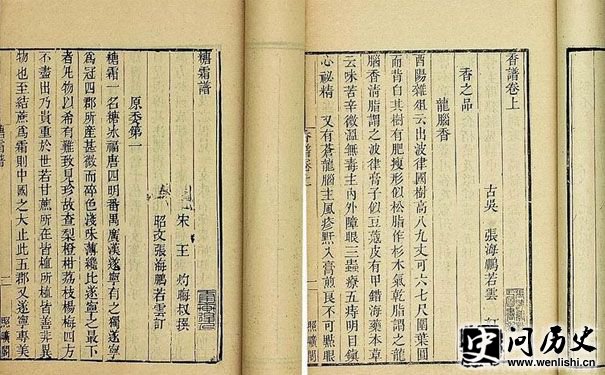 香譜卷上
古吳 張海鵬若雲
香之品
龍腦香
酉陽雜俎云出波律國樹高八九丈可六七尺圍葉圓
而背白其樹有肥瘦形似松脂作杉木氣乾脂謂之龍
腦香清脂謂之波律膏子似豆蔻皮有甲錯海藥本草
云味苦辛微溫無毒主內外障眼三蟲療五痔明目鎮
心祕精 又有蒼龍腦主風疹䵟入膏煎良不可點眼
香譜卷上
一
照曠閣
糖霜譜
宋 王 灼晦叔撰
昭文張海鵬若雲訂
原委第一
糖霜一名糖冰福唐四明番禺廣漢遂寧有之獨遂寧
爲冠四郡所產甚微而碎色淺味薄纔比遂寧之最下
者凡物以希有難致見珍故查梨橙柑荔枝楊梅四方
不盡出乃貴重於世若甘蔗所在皆植所植皆善非異
物也至結蔗爲霜則中國之大止此五郡又遂寧專美
糖霜譜
一
照曠閣
史问历史
www.wenlishi.cn